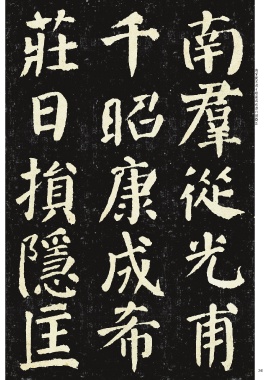 南羣從光甫
千昭康成希
莊日損隱匡